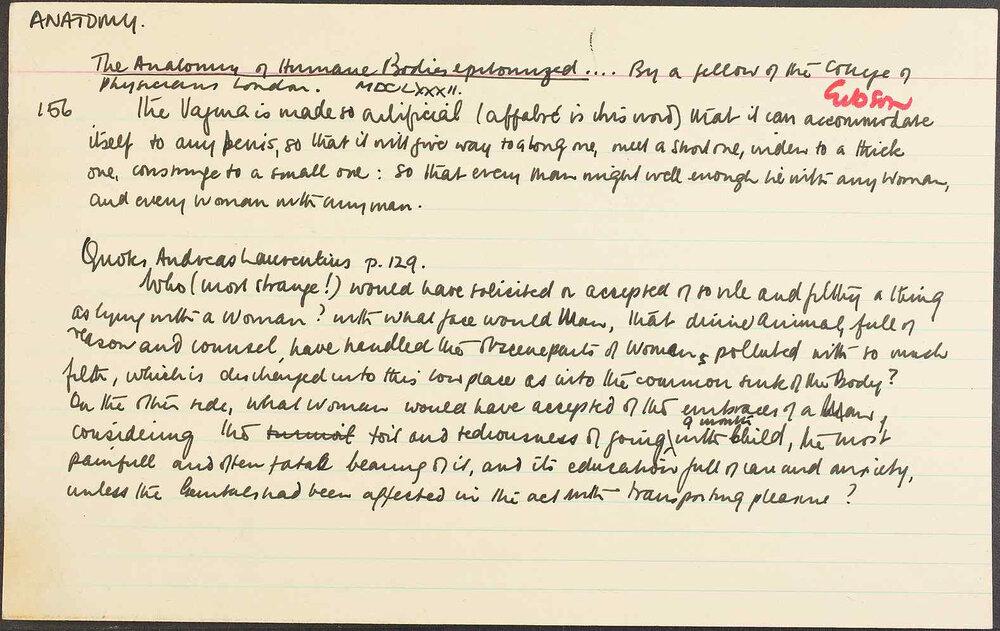 ANATOMY.
The Anatomy of Humane Bodies epitomized .... By a fellow of the College of
Physicians London. MDCLXXXII.
Gibson
156 The Vagina is made so artificial (affabré is his word) that it can accommodate
itself to any penis, so that it will give way to a long one, meet a short one, widen to a thick
one, constringe to a small one: so that every man might well enough lie with any Woman,
and every Woman with any man.
Quotes Andreas Laurentius p.129.
Who (most strange!) would have solicited or accepted of so vile and filthy a thing
as lying with a Woman? with what face would Man, that divine Animal, full of
reason and counsel, have handled the obscene parts of Woman, polluted with so much
filth, which is discharged into this low place as into the common sink of the Body?
On the other side, what Woman would have accepted of the embraces of a Man,
9 months
considering the toil and tediousness of going with Child, the most
painfull and often fatal bearing of it, and its education full of care and anxiety,
unless the Genitals had been affected in the act with transporting pleasure?